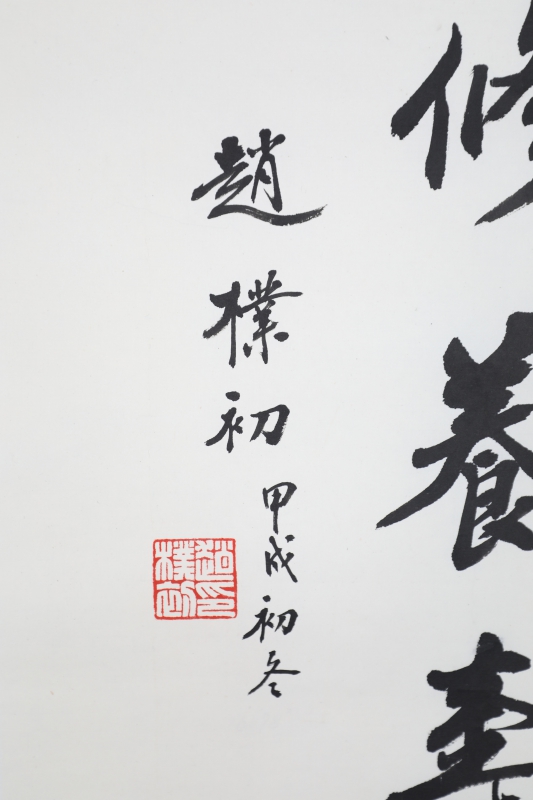 修養
趙樸初
甲戌初冬
趙樸初印